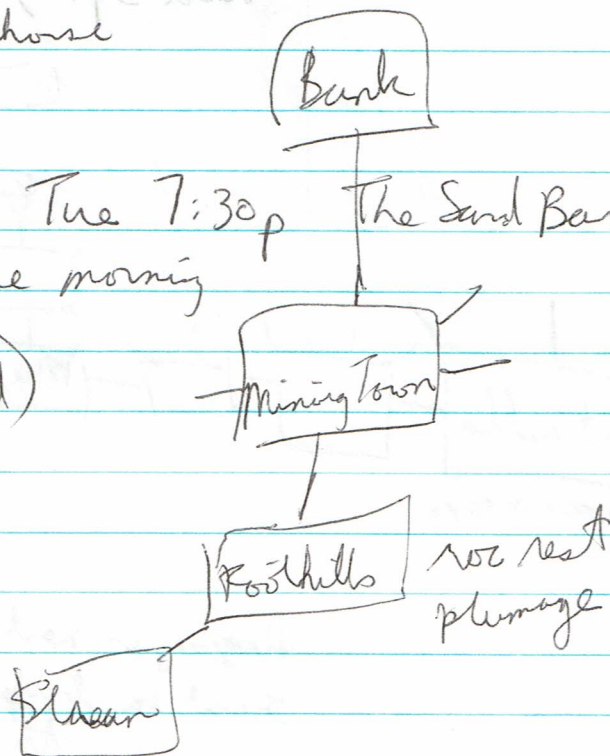 Bank
Tue 7:30p The Sand Bar
morning
Mining Town
Foothills
roc nest
plumage
Stream